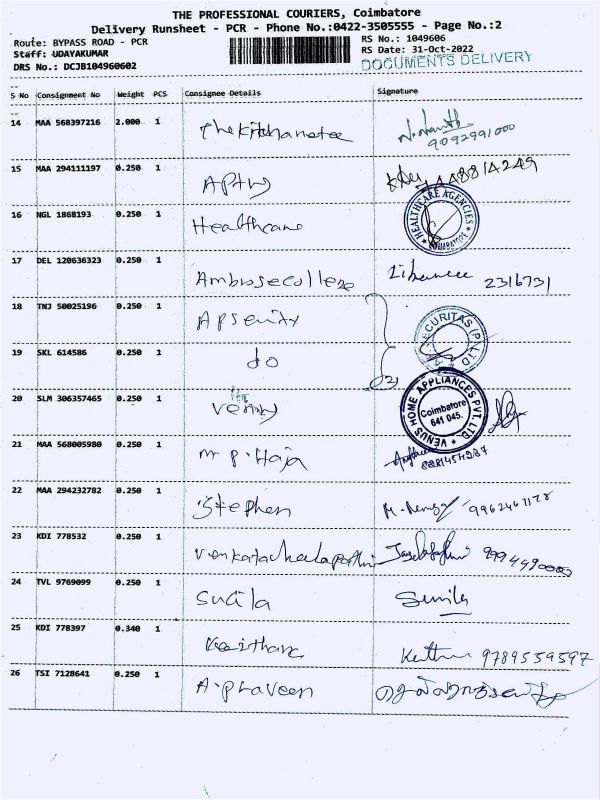 THE PROFESSIONAL COURIERS, Coimbatore
Delivery Runsheet - PCR - Phone No.:0422-3505555 - Page No.:2
Route: BYPASS ROAD - PCR
RS No.: 1049606
Staff: UDAYAKUMAR
RS Date: 31-Oct-2022
DRS No.: DCJB104960602
DOCUMENTS DELIVERY
S No Consignment No Weight PCS Consignee Details Signature
14 MAA 568397216 2.000 1
9092991000
15 MAA 294111197 0.250 1
16 NGL 1868193 0.250 1 Healthcare
HEALTHCARE AGENCIES
COIMBATORE
17 DEL 120636323 0.250 1 Ambrose college 2316731
18 TNJ 50025196 0.250 1
SECURITAS (P) LTD
19 SKL 614586 0.250 1 do
20 SLM 306357465 0.250 1
VENUS HOME APPLIANCES PVT. LTD
Coimbatore
641 045.
21 MAA 568005980 0.250 1 Mr P. Haja
22 MAA 294232782 0.250 1 Stephen 9962467178
23 KDI 778532 0.250 1
24 TVL 9769099 0.250 1 Sucila
25 KDI 778397 0.340 1 9789559597
26 TSI 7128641 0.250 1 A. praveen